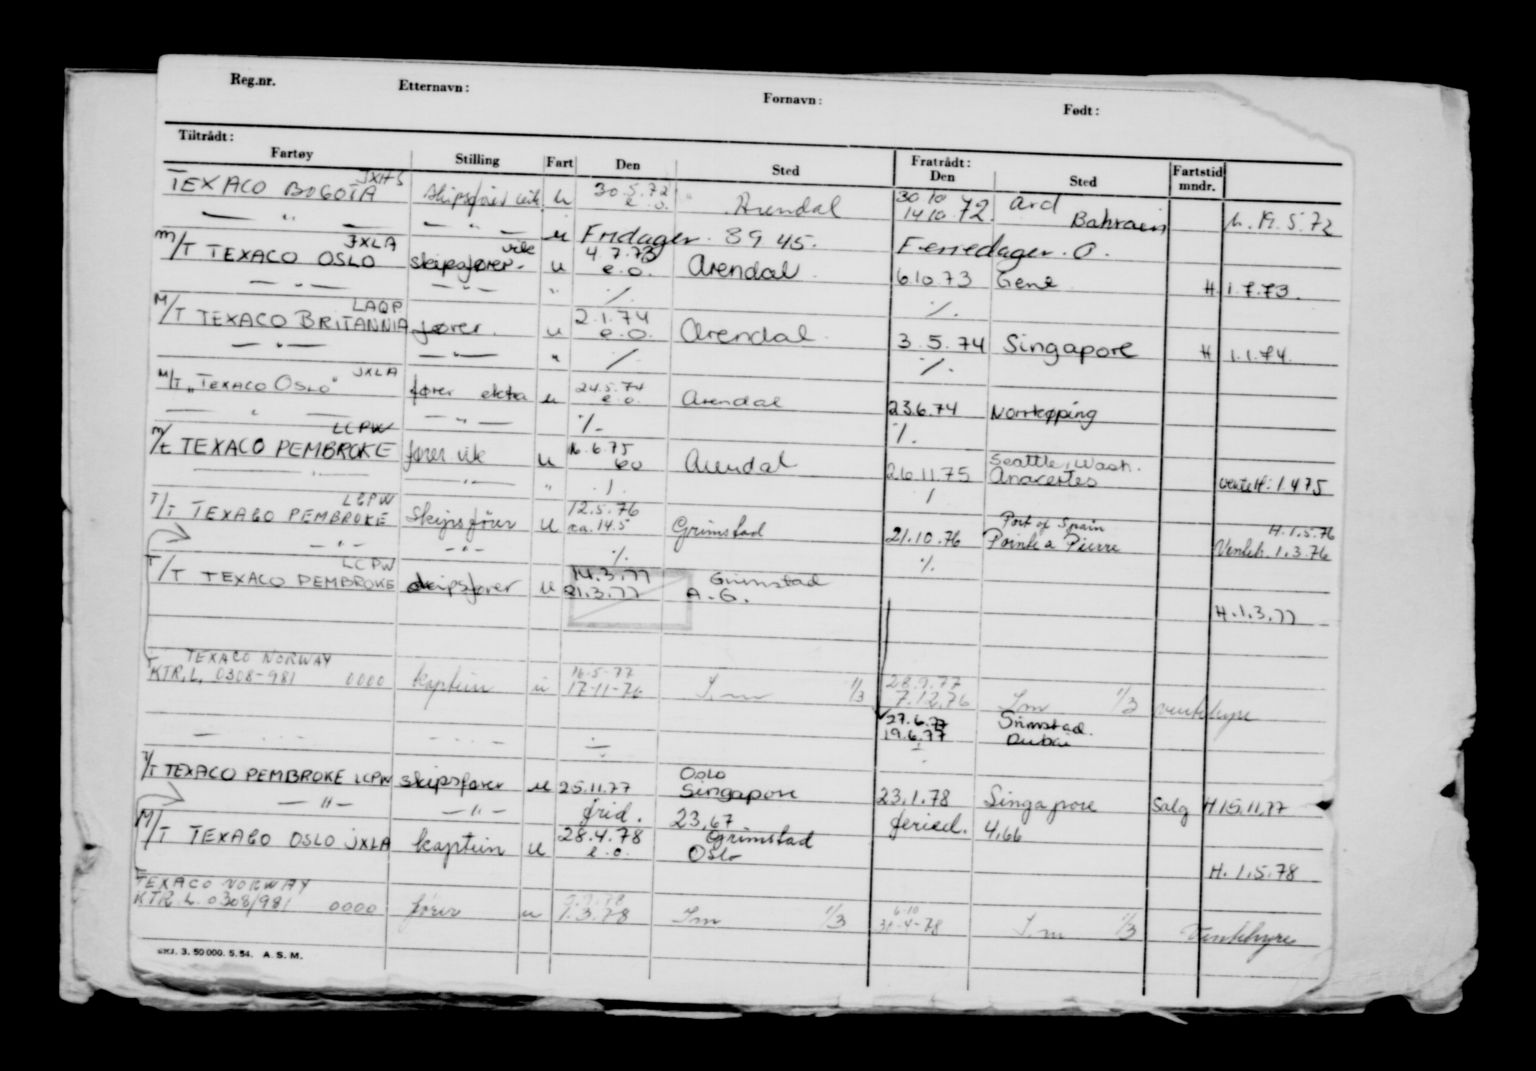 Reg.nr. Etternavn: Fornavn: Født:
Tiltrådt: Fratrådt:
Fartøy Stilling Fart Den Sted Den Sted Fartstid mndr.
JXHS 30.5.72 30/10 72 ard
TEXACO BOGOTA skipsfører vik u e.o. Arendal 14/10.72 Bahrain h. 19.5.72
— " — — " — u Fridager. 89 45. Feriedager. 0.
JXLA vik 4.7.73
M/T TEXACO OSLO skipsfører. u e.o. Arendal 6.10.73 Gent H. 1.7.73.
— " — — " — " ./. ./.
LAQP 2.1.74
M/T TEXACO BRITANNIA fører. u e.o. Arendal 3.5.74 Singapore H 1.1.74.
— " — — " — " ./. ./.
JXLA 24.5.74
M/T "TEXACO OSLO" fører ekstra u e.o. Arendal 23.6.74 Norrkøping
— " — — " — ./. ./.
LCPW 16.6.75 Seattle, Wash.
M/T TEXACO PEMBROKE fører vik u eo Arendal 26.11.75 Anacortes venteH: 1.4.75
— " — — " — " ./. /
LCPW 12.5.76 Port of Spain H.1.5.76
T/T TEXACO PEMBROKE Skipsfører u ca.14.5 Grimstad 21.10.76 Pointe a Pierre Venteh. 1.3.76
— " — — " — ./. ./.
LCPW 14.3.77 Grimstad
T/T TEXACO PEMBROKE skipsfører u 21.3.77 A.G. H.1.3.77
TEXACO NORWAY 16-5-77 28.9.77
KTR.L. 0308-981 0000 kaptein u 17-11-76 Im 1/3 7.12.76 Im 1/3 ventehyre
27.6.77 Grimstad.
19.6.77 Dubai
Oslo
T/T TEXACO PEMBROKE LCPW skipsfører u 25.11.77 Singapore 23.1.78 Singapore Salg H 15.11.77
— " — — " — frid. 23,67 feried. 4,66
28.4.78 Grimstad
M/T TEXACO OSLO JXLA kaptein u e.o. Oslo H. 1.5.78
TEXACO NORWAY 6-10
KTR. L. 0308/981 0000 fører u 1.3.78 Im 1/3 31-4-78 Im 1/3 Ventehyre
3. 50 000. 5. 54. A. S. M.